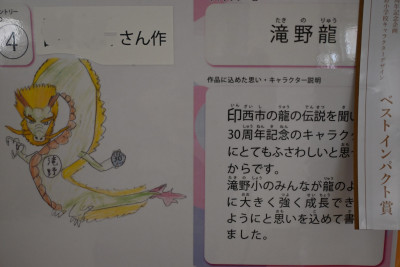 ントリー
4
さん作
たき の りゅう
滝野龍
作品に込めた思い・キャラクター説明
いん ざい し りゅう でん せつ き
印西市の龍の伝説を聞い
しゅう ねん き ねん
30周年記念のキャラク
にとてもふさわしいと思
からです。
滝野小のみんなが龍のよ
に大きく強く成長でき
ようにと思いを込めて書
ました。
滝野
ベストインパクト賞